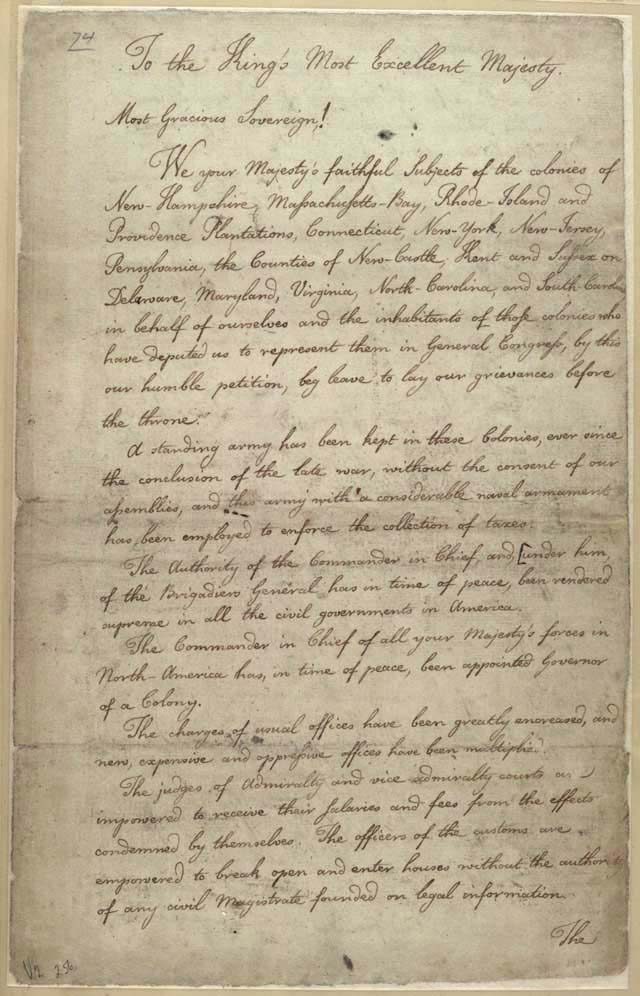 74
To the King's Most Excellent Majesty.
Most Gracious Sovereign!
We your Majesty's faithful Subjects of the colonies of
New-Hampshire, Massachusetts-Bay, Rhode-Island and
Providence Plantations, Connecticut, New-York, New-Jersey,
Pensylvania, the Counties of New-Castle, Kent and Sussex on
Delaware, Maryland, Virginia, North-Carolina, and South-Carolina
in behalf of ourselves and the inhabitants of those colonies who
have deputed us to represent them in General Congress, by this
our humble petition, beg leave to lay our grievances before
the throne.
A standing army has been kept in these Colonies, ever since
the conclusion of the late war, without the consent of our
assemblies, and this army with a considerable naval armament
has been employed to enforce the collection of taxes.
The Authority of the Commander in Chief, and, [under him,
of the Brigadiers General has in time of peace, been rendered
supreme in all the civil governments in America.
The Commander in Chief of all your Majesty's forces in
North-America has, in time of peace, been appointed Governor
of a Colony.
The charges of usual offices have been greatly encreased, and
new, expensive and oppressive offices have been multiplied.
The judges of Admiralty and vice admiralty courts are
impowered to receive their salaries and fees from the effects
condemned by themselves. The officers of the customs are
empowered to break open and enter houses without the authority
of any civil Magistrate founded on legal information.
The
V2 256